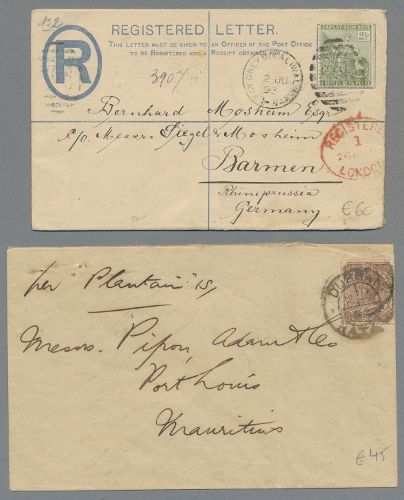 REGISTERED LETTER.
THIS LETTER MUST BE GIVEN TO AN OFFICER OF THE POST OFFICE
TO BE REGISTERED AND A RECEIPT OBTAINED FOR IT.
R
3907
CAPE OF GOOD HOPE
2 JU
93
Bernhard Mosheim Esqr
c/o Messrs Siegel & Mosheim
Barmen
Rhineprussia
Germany
REGISTERED
1
LONDON
€ 60
per "Plantain" S/
DURBAN
NATAL
Messrs. Pipon, Adam & Co
Port Louis
Mauritius
€ 45